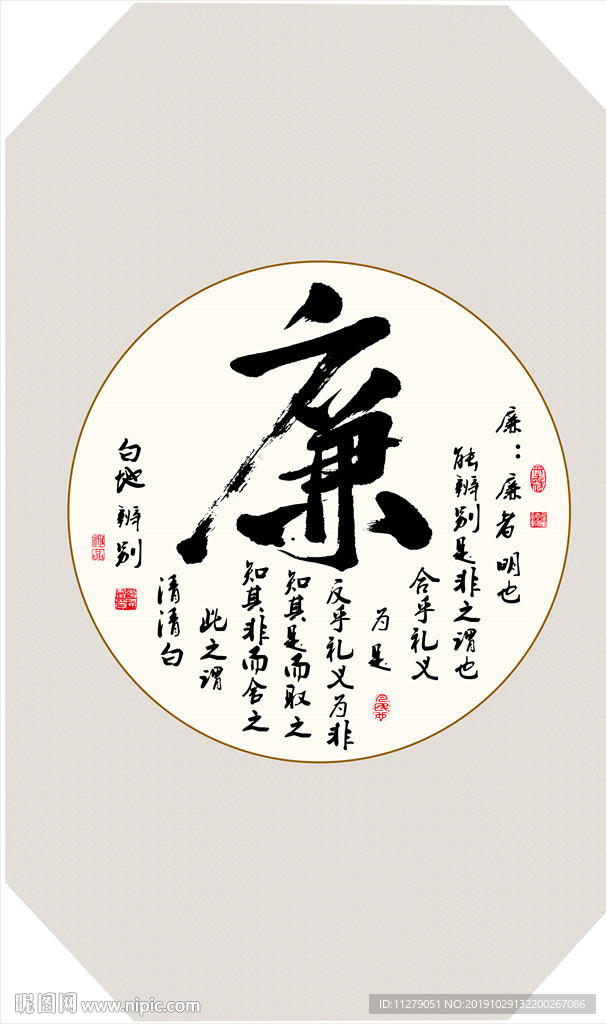 廉
廉：廉者明也
能辨别是非之谓也
合乎礼义
为是
反乎礼义为非
知其是而取之
知其非而舍之
此之谓
清清白
白地辨别
昵图网 www.nipic.com
ID:11279051 NO:20191029132200267086